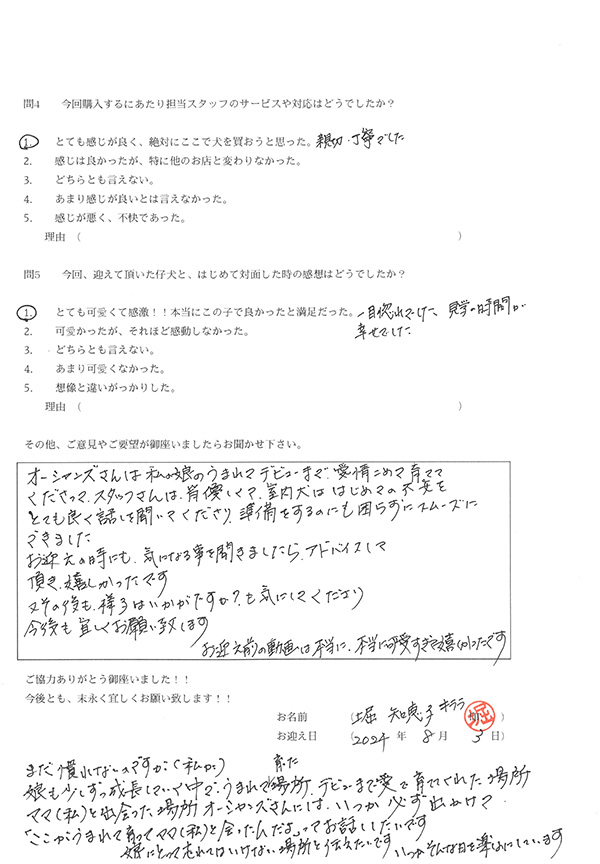 問4　今回購入するにあたり担当スタッフのサービスや対応はどうでしたか？
1.　とても感じが良く、絶対にここで犬を買おうと思った。親切・丁寧でした
2.　感じは良かったが、特に他のお店と変わりなかった。
3.　どちらとも言えない。
4.　あまり感じが良いとは言えなかった。
5.　感じが悪く、不快であった。
理由　（　　　　　）
問5　今回、迎えて頂いた仔犬と、はじめて対面した時の感想はどうでしたか？
1.　とても可愛くて感激！！本当にこの子で良かったと満足だった。一目惚れでした、見学の時間が
幸せでした
2.　可愛かったが、それほど感動しなかった。
3.　どちらとも言えない。
4.　あまり可愛くなかった。
5.　想像と違いがっかりした。
理由　（　　　　　）
その他、ご意見やご要望が御座いましたらお聞かせ下さい。
オーシャンズさんは私の娘のうまれてデビューまで、愛情こめて育てて
くださって、スタッフさんは、皆優しくて、室内犬ははじめての不安を
とても良く話しを聞いてくださり、準備をするのにも困らずにスムーズに
できました
お迎えの時にも、気になる事を聞きましたら、アドバイスして
頂き、嬉しかったです
又その後も、様子はいかがですか？も気にしてくださり
今後も宜しくお願い致します
お迎え前の動画は本当に、本当に可愛すぎて嬉しかったです
ご協力ありがとう御座いました！！
今後とも、末永く宜しくお願い致します！！
お名前　（堀　知恵子　キララ　堀）
お迎え日　（2024　年　8　月　3　日）
まだ慣れないのですが（私が）　育った
娘も少しずつ成長していく中で、うまれて場所、デビューまで愛で育ててくれた場所
ママ（私）と出会った場所オーシャンズさんには、いつか必ず出かけて
「ここがうまれて育ってママ（私）と会ったんだよ」ってお話ししたいです
娘にとって忘れてはいけない場所と伝えたいです　いつかそんな日を楽しみにしています